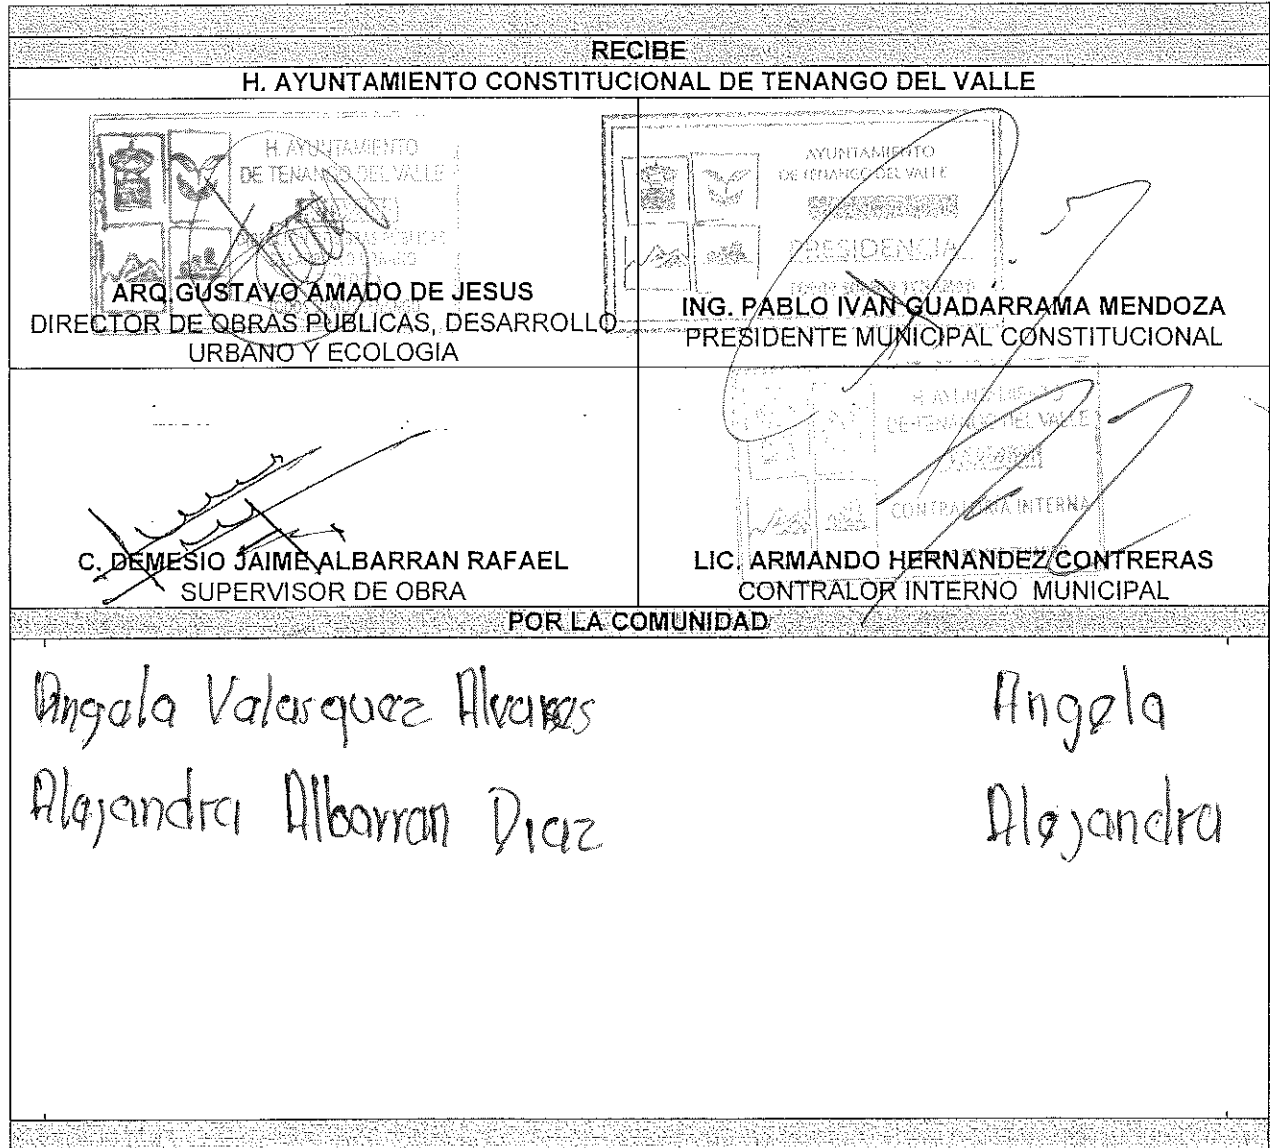 RECIBE
H. AYUNTAMIENTO CONSTITUCIONAL DE TENANGO DEL VALLE
H. AYUNTAMIENTO
DE TENANGO DEL VALLE
ARQ.GUSTAVO AMADO DE JESUS
DIRECTOR DE OBRAS PUBLICAS, DESARROLLO
URBANO Y ECOLOGIA
AYUNTAMIENTO
DE TENANGO DEL VALLE
PRESIDENCIA
ING. PABLO IVAN GUADARRAMA MENDOZA
PRESIDENTE MUNICIPAL CONSTITUCIONAL
C. DEMESIO JAIME ALBARRAN RAFAEL
SUPERVISOR DE OBRA
H. AYUNTAMIENTO
DE TENANGO DEL VALLE
CONTRALORIA INTERNA
LIC. ARMANDO HERNANDEZ CONTRERAS
CONTRALOR INTERNO MUNICIPAL
POR LA COMUNIDAD
Angela Valasquez Alvares Angela
Alejandra Albarran Diaz Alejandra